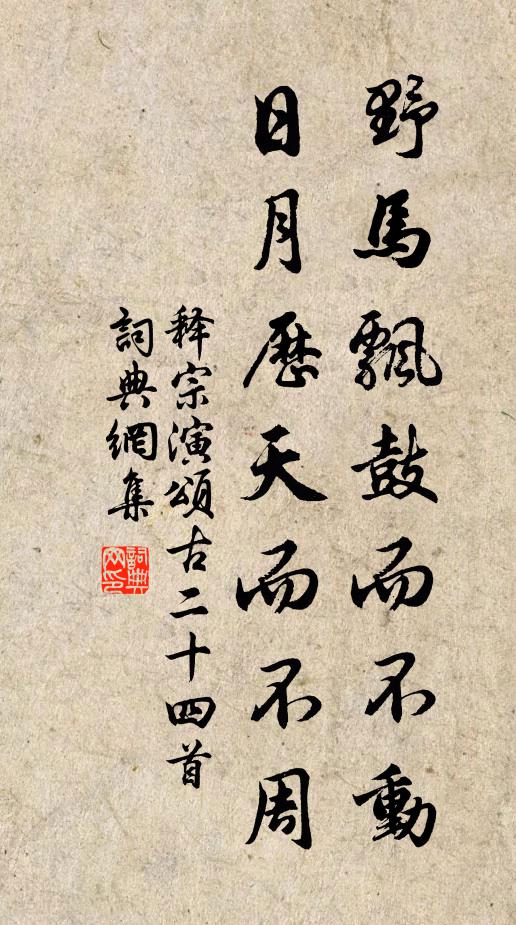 野馬飄鼓而不動
日月歷天而不周
释宗演頌古二十四首
詞典網集
詞典
网印